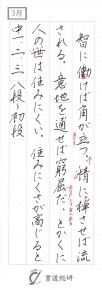 3月
智に働けば角が立つ。情に棹させば流
される。意地を通せば窮屈だ。とかくに
人の世は住みにくい。住みにくさが高じると
中一・二・三 八段〜初段
書道総研